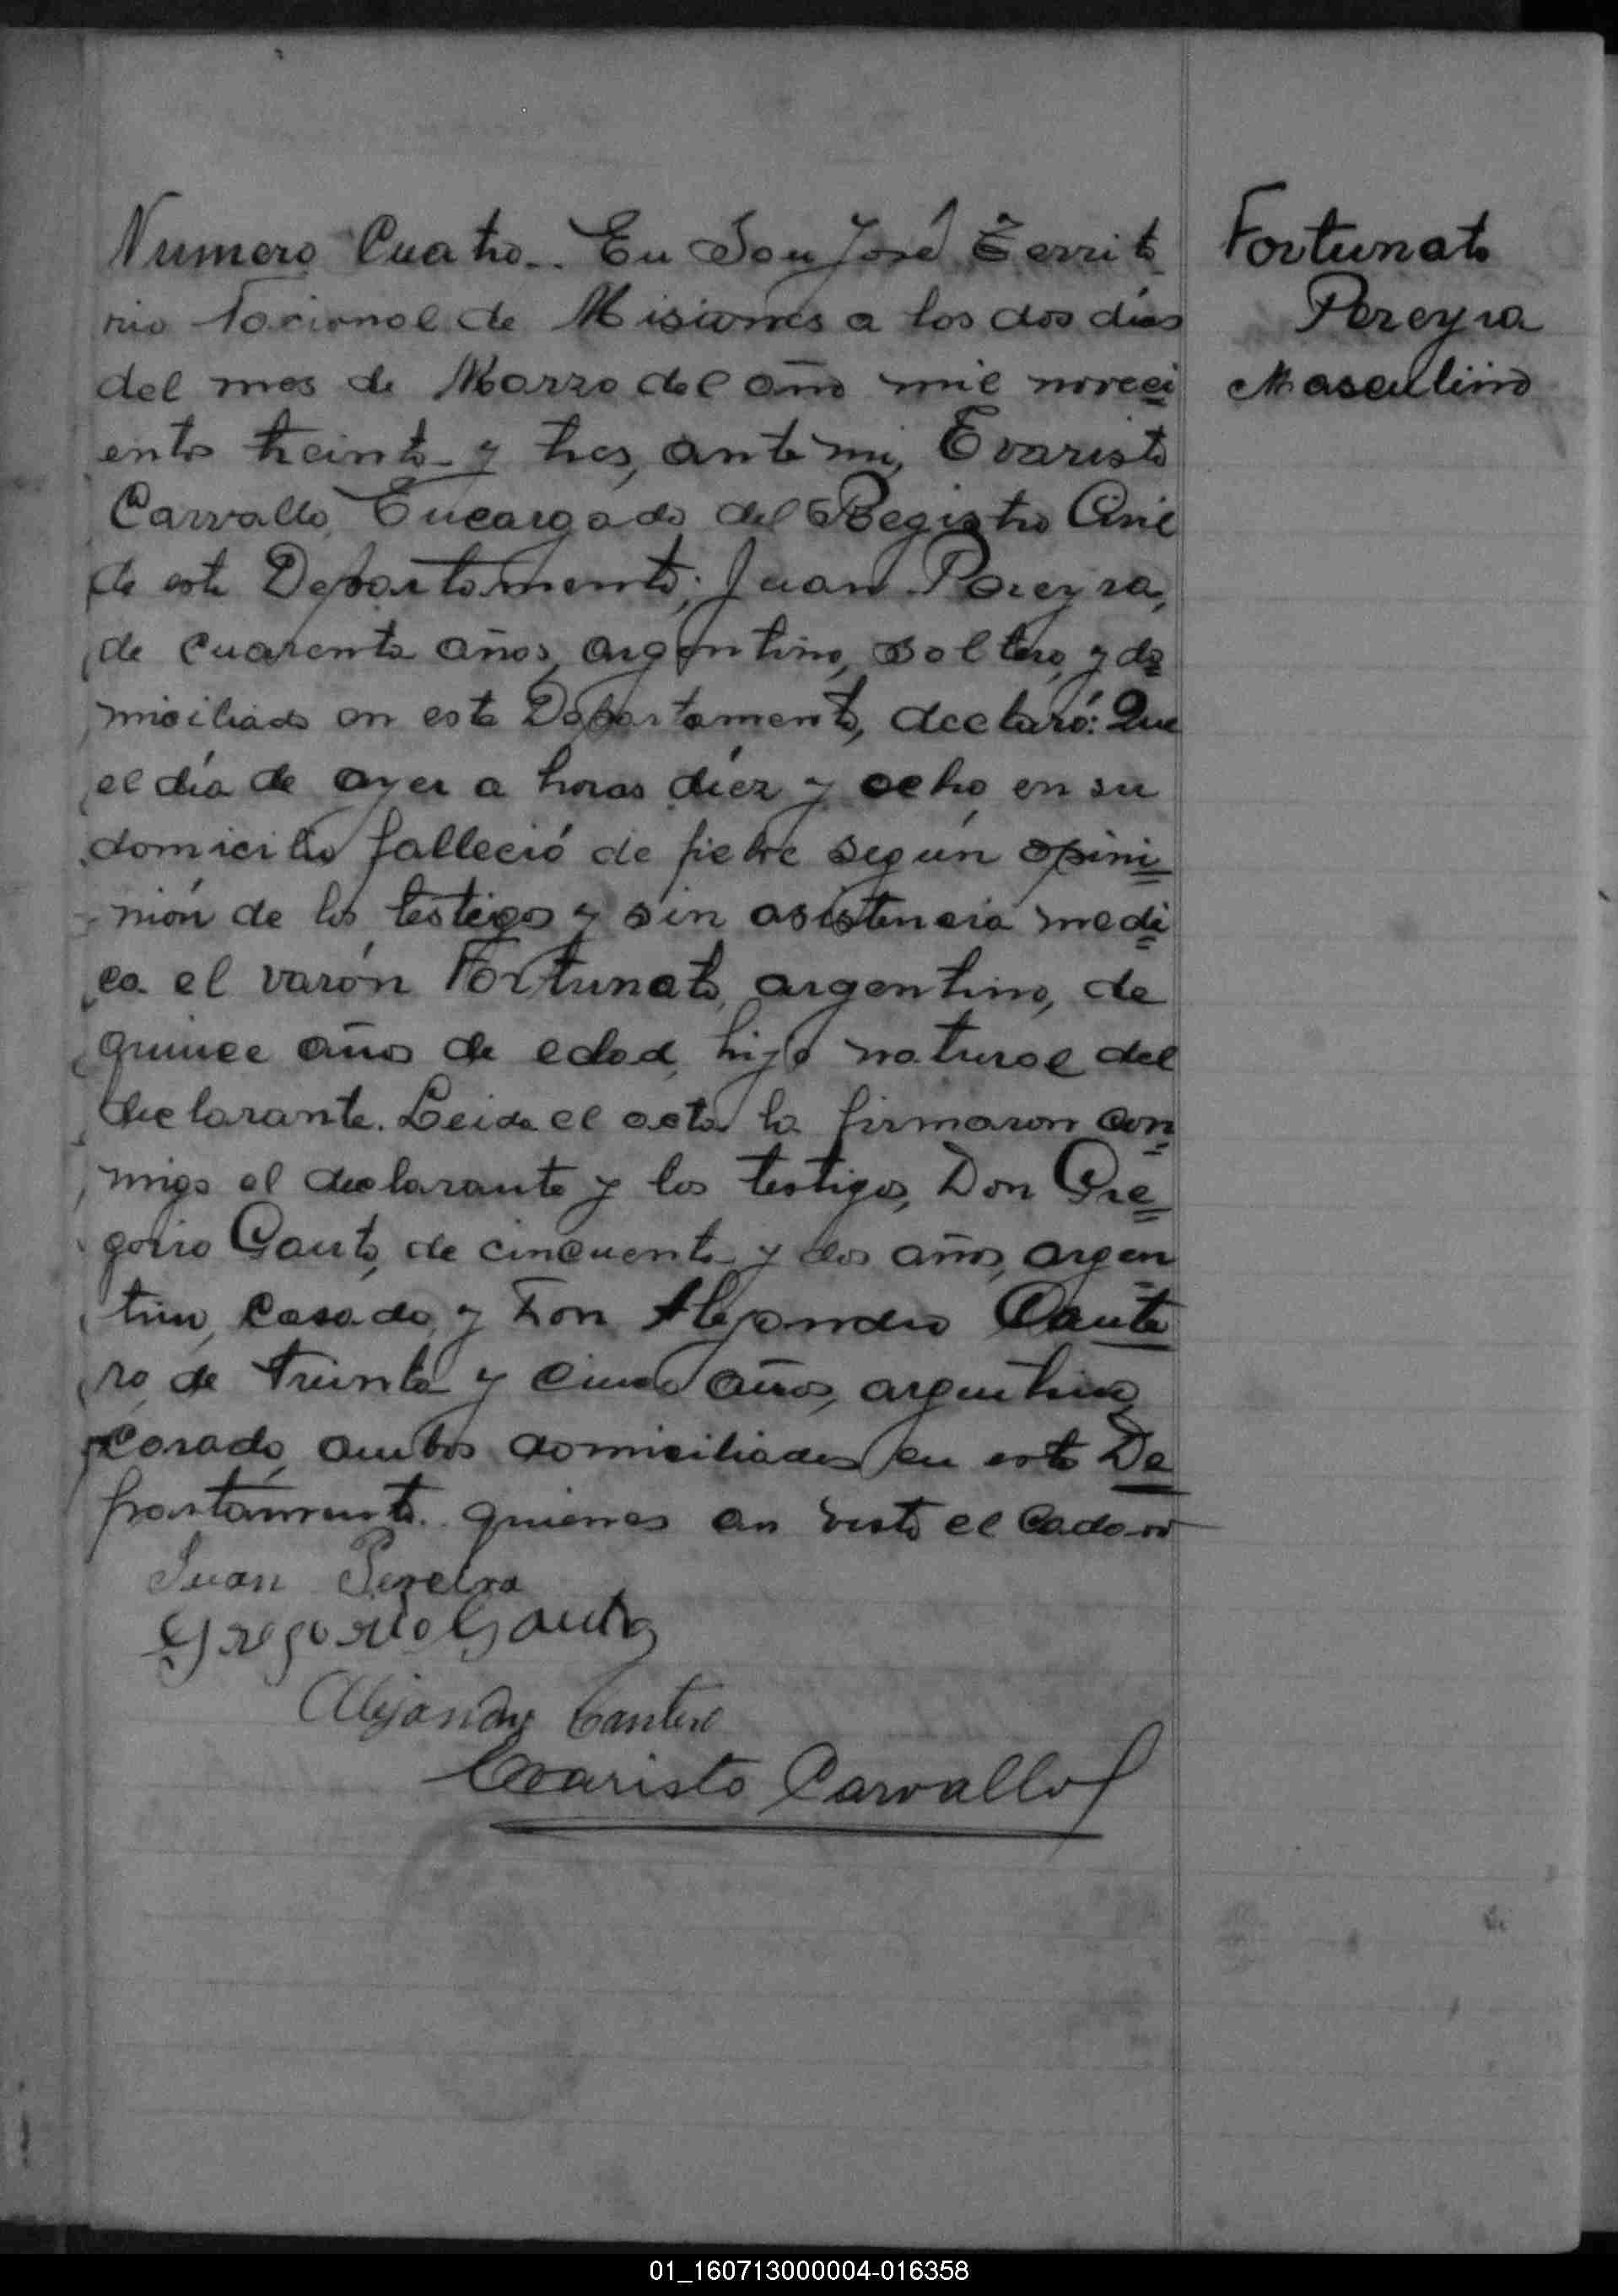 Numero Cuatro.. En San José Territo
rio Nacional de Misiones a los dos días
del mes de Marzo del año mil noveci
entos treinta y tres, ante mi, Evaristo
Carvallo, Encargado del Registro Civil
de este Departamento; Juan Pereyra,
de cuarenta años, argentino, soltero, y do
miciliado en este Departamento, declaró: Que
el día de ayer a horas diez y ocho en su
domicilio falleció de fiebre según opini
nión de los testigos y sin asistencia medi
ca el varón Fortunato, argentino, de
quince años de edad, hijo natural del
declarante. Leida el acta la firmaron con
migo el declarante y los testigos, Don Gre
gorio Gauto, de cincuenta y dos años, argen
tino, casado, y Don Alejandro Cante
ro, de treinta y cinco años, argentino,
casado, ambos domiciliados en este De
partamento. quienes an visto el Cadaver
Juan Pereira
Gregorio Gauto
Alejandro Cantero
Evaristo Carvallo
Fortunato
Pereyra
Masculino
01_160713000004-016358